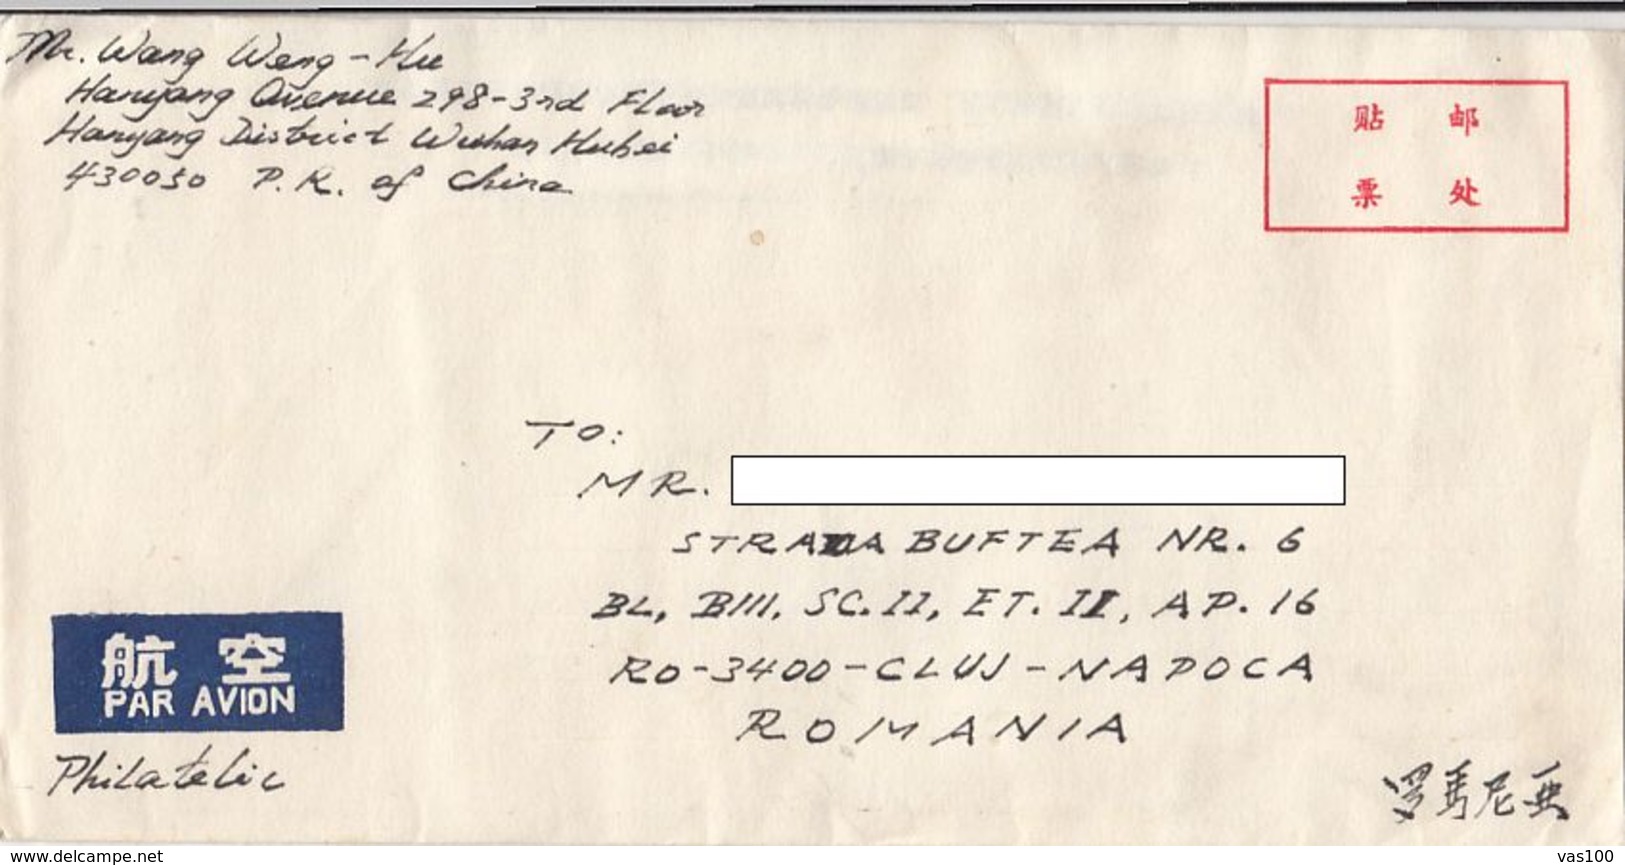 Mr. Wang Weng-Hu
Hanyang Avenue 298-3rd Floor
Hanyang District Wuhan Hubei
430050 P.R. of China
贴 邮
票 处
TO:
MR.
STRADA BUFTEA NR. 6
BL, BIII, SC.II, ET. II, AP. 16
RO-3400-CLUJ-NAPOCA
ROMANIA
航空
PAR AVION
Philatelic
罗马尼亚
www.delcampe.net
vas100